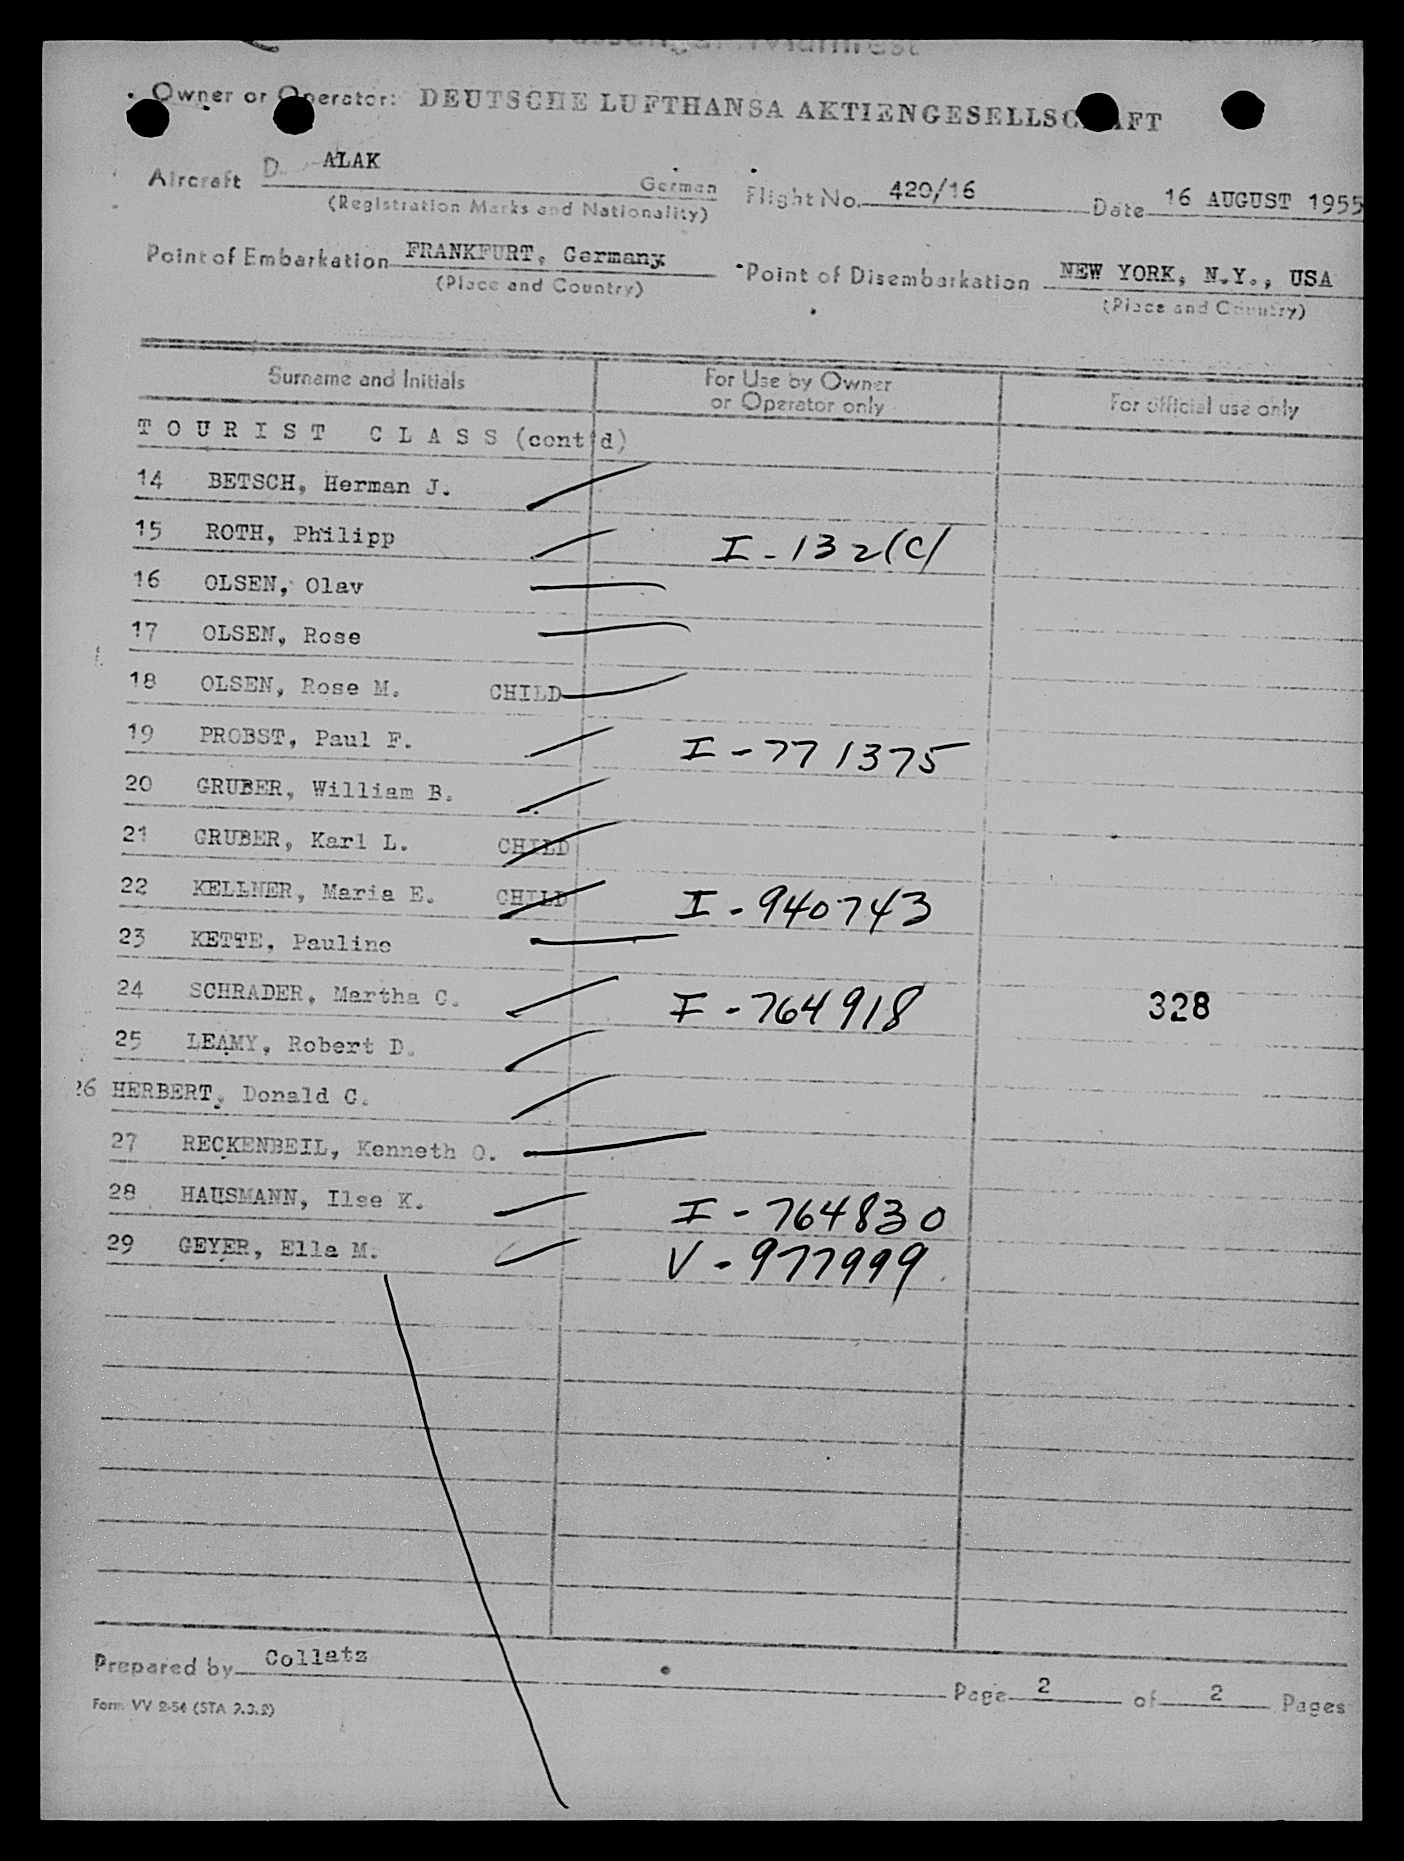 Passenger Manifest
Owner or Operator: DEUTSCHE LUFTHANSA AKTIENGESELLSCHAFT
Aircraft D- ALAK German Flight No. 420/16 Date 16 AUGUST 1955
(Registration Marks and Nationality)
Point of Embarkation FRANKFURT, Germany. Point of Disembarkation NEW YORK, N.Y., USA
(Place and Country) (Place and Country)
Surname and Initials For Use by Owner or Operator only For official use only
TOURIST CLASS (cont'd)
14 BETSCH, Herman J.
15 ROTH, Philipp I-132(C)
16 OLSEN, Olav
17 OLSEN, Rose
18 OLSEN, Rose M. CHILD
19 PROBST, Paul F. I-771375
20 GRUBER, William B.
21 GRUBER, Karl L. CHILD
22 KELLNER, Maria E. CHILD I-940743
23 KETTE, Pauline
24 SCHRADER, Martha C. I-764918 328
25 LEAMY, Robert D.
26 HERBERT, Donald C.
27 RECKENBEIL, Kenneth O.
28 HAUSMANN, Ilse K. I-764830
29 GEYER, Ella M. V-977999
Prepared by Collatz
Page 2 of 2 Pages
Form VV 2-54 (STA 9.3.2)